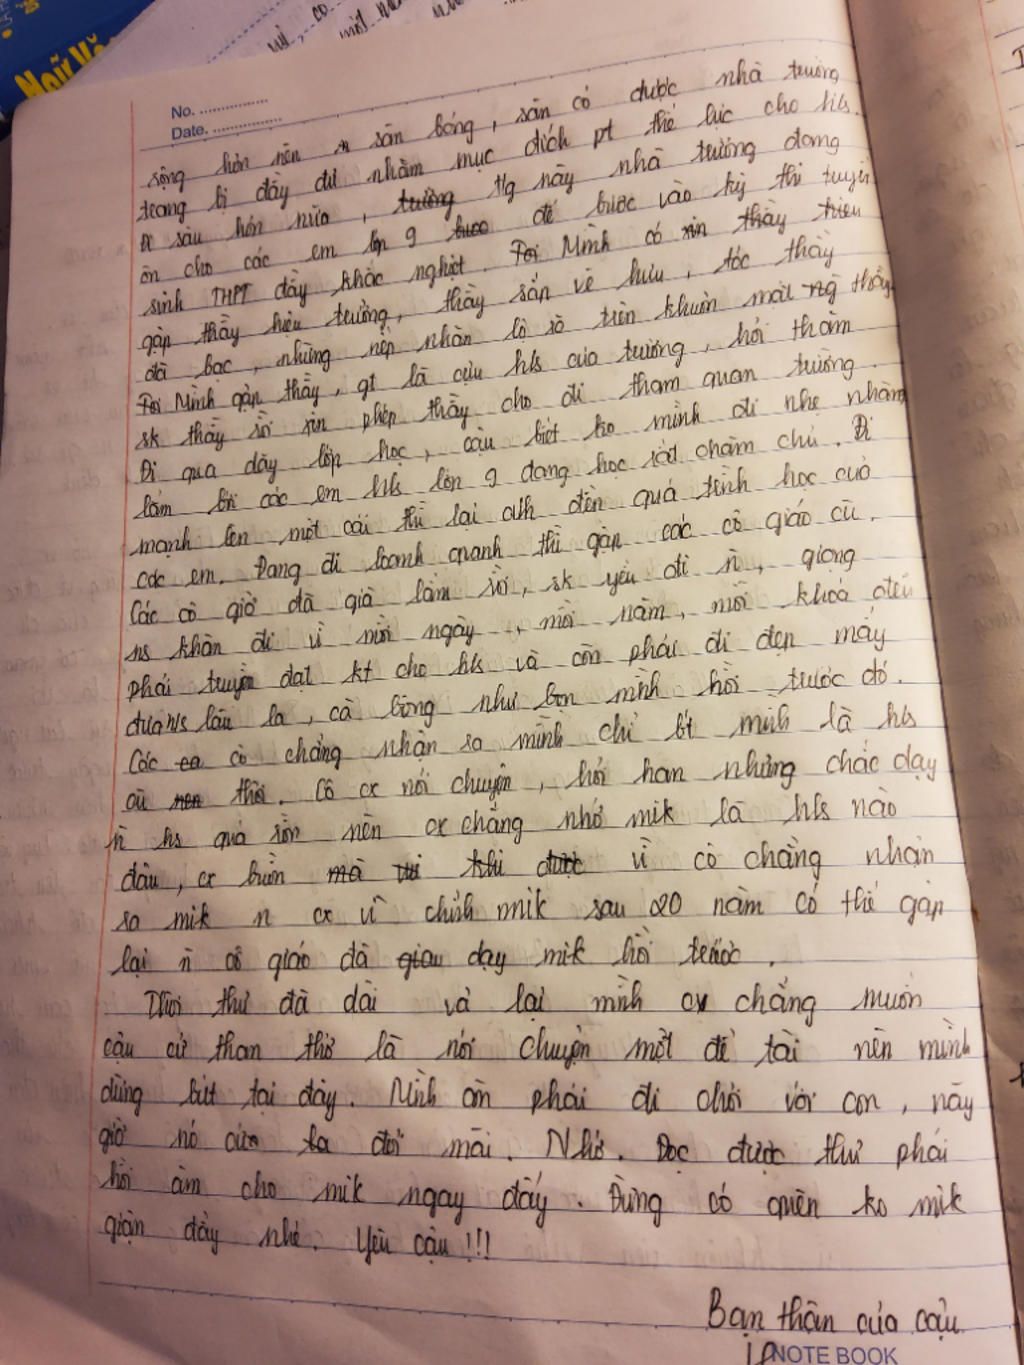 NGỮ VĂ
No. ................
Date. ................
rộng hơn nên sân bóng, sân cỏ được nhà trường
trang bị đầy đủ nhằm mục đích pt thể lực cho hs.
Đi sâu hơn nữa, trường tg này nhà trường đang
ôn cho các em lớp 9 bước để bước vào kỳ thi tuyển
sinh THPT đầy khắc nghiệt. Tôi Mình có xin thầy hiệu
gặp thầy hiệu trưởng, thầy sắp về hưu, tóc thầy
đã bạc, những nếp nhăn lộ rõ trên khuôn mặt ng thầy
Tôi Mình gặp thầy, gt là cựu hs của trường, hỏi thăm
sk thầy rồi xin phép thầy cho đi tham quan trường.
Đi qua dãy lớp học, cậu biết ko mình đi nhẹ nhàng
lắm bởi các em hs lớp 9 đang học rất chăm chú. Đi
mạnh lên một cái thì lại ah đến quá trình học của
các em. Đang đi loanh quanh thì gặp các cô giáo cũ.
Các cô giờ đã già lắm rồi, sk yếu đi n, giọng
ns khàn đi vì mỗi ngày, mỗi năm, mỗi khoá đều
phải truyền đạt kt cho hs và còn phải đi dẹp mấy
đứa hs lâu la, cà bông như bọn mình hồi trước đó.
Các cô chẳng nhận ra mình chỉ bt mình là hs
cũ nen thôi. Cô cx nói chuyện, hỏi han nhưng chắc dạy
n hs quá rồi nên cx chẳng nhớ mik là hs nào
đâu, cx buồn mà khi được vì cô chẳng nhận
ra mik n cx vì chính mik sau 20 năm có thể gặp
lại n cô giáo đã giau dạy mik hồi trước.
Thôi thư đã dài và lại mình cx chẳng muốn
cậu cứ than thở là nói chuyện một đề tài nên mình
dừng bút tại đây. Mình còn phải đi chơi với con, nãy
giờ nó cứ la đòi mãi. Nhớ. Đọc được thư phải
hồi âm cho mik ngay đấy. Đừng có quên ko mik
giận đấy nhé. Yêu cậu!!!
Bạn thân của cậu
NOTE BOOK